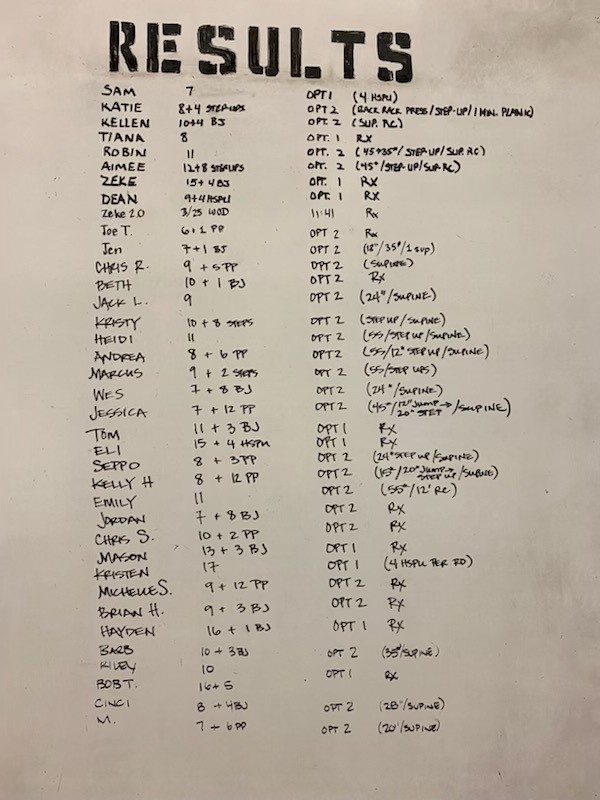 RESULTS
SAM 7 OPT 1 (4 HSPU)
KATIE 8+4 STEP-UPS OPT 2 (BACK RACK PRESS/STEP-UP/1 MIN. PLANK)
KELLEN 10+4 BJ OPT. 2 (SUP. RC)
TIANA 8 OPT. 1 RX
ROBIN 11 OPT. 2 (45+35#/STEP UP/SUP RC)
AIMEE 12+8 STEPUPS OPT. 2 (45#/STEP UP/SUP RC)
ZEKE 15+4 BJ OPT. 1 RX
DEAN 9+4 HSPU OPT. 1 RX
Zeke 2.0 3/25 WOD 11:41 Rx
Joe T. 6+1 PP OPT 2 Rx
Jen 7+1 BJ OPT 2 (12"/35#/1 sup)
CHRIS R. 9 + 5 PP OPT 2 (SUPINE)
BETH 10 + 1 BJ OPT 2 Rx
JACK L. 9 OPT 2 (24"/SUPINE)
KRISTY 10 + 8 STEPS OPT 2 (STEP UP/SUPINE)
HEIDI 11 OPT 2 (55/STEP UP/SUPINE)
ANDREA 8 + 6 PP OPT 2 (55/12" STEP UP/SUPINE)
MARCUS 9 + 2 STEPS OPT 2 (55/STEP UPS)
WES 7 + 8 BJ OPT 2 (24"/SUPINE)
JESSICA 7 + 12 PP OPT 2 (45#/12" JUMP→ 20" STEP/SUPINE)
TOM 11 + 3 BJ OPT 1 Rx
ELI 15 + 4 HSPU OPT 1 Rx
SEPPO 8 + 3 PP OPT 2 (24" STEP UP/SUPINE)
KELLY H 8 + 12 PP OPT 2 (20" JUMP→ STEP UP/SUPINE)
EMILY 11 OPT 2 (55#/12' RC)
JORDAN 7 + 8 BJ OPT 2 Rx
CHRIS S. 10 + 2 PP OPT 2 Rx
MASON 13 + 3 BJ OPT 1 Rx
KRISTEN 17 OPT 1 (4 HSPU PER RD)
MICHELLE S. 9 + 12 PP OPT 2 Rx
BRIAN H. 9 + 3 BJ OPT 2 Rx
HAYDEN 16 + 1 BJ OPT 1 Rx
BARB 10 + 3 BJ OPT 2 (35#/SUPINE)
KILEY 10 OPT 1 Rx
BOB T. 16+5
CINCI 8 + 4BJ OPT 2 (28"/SUPINE)
M. 7 + 6 PP OPT 2 (20"/SUPINE)